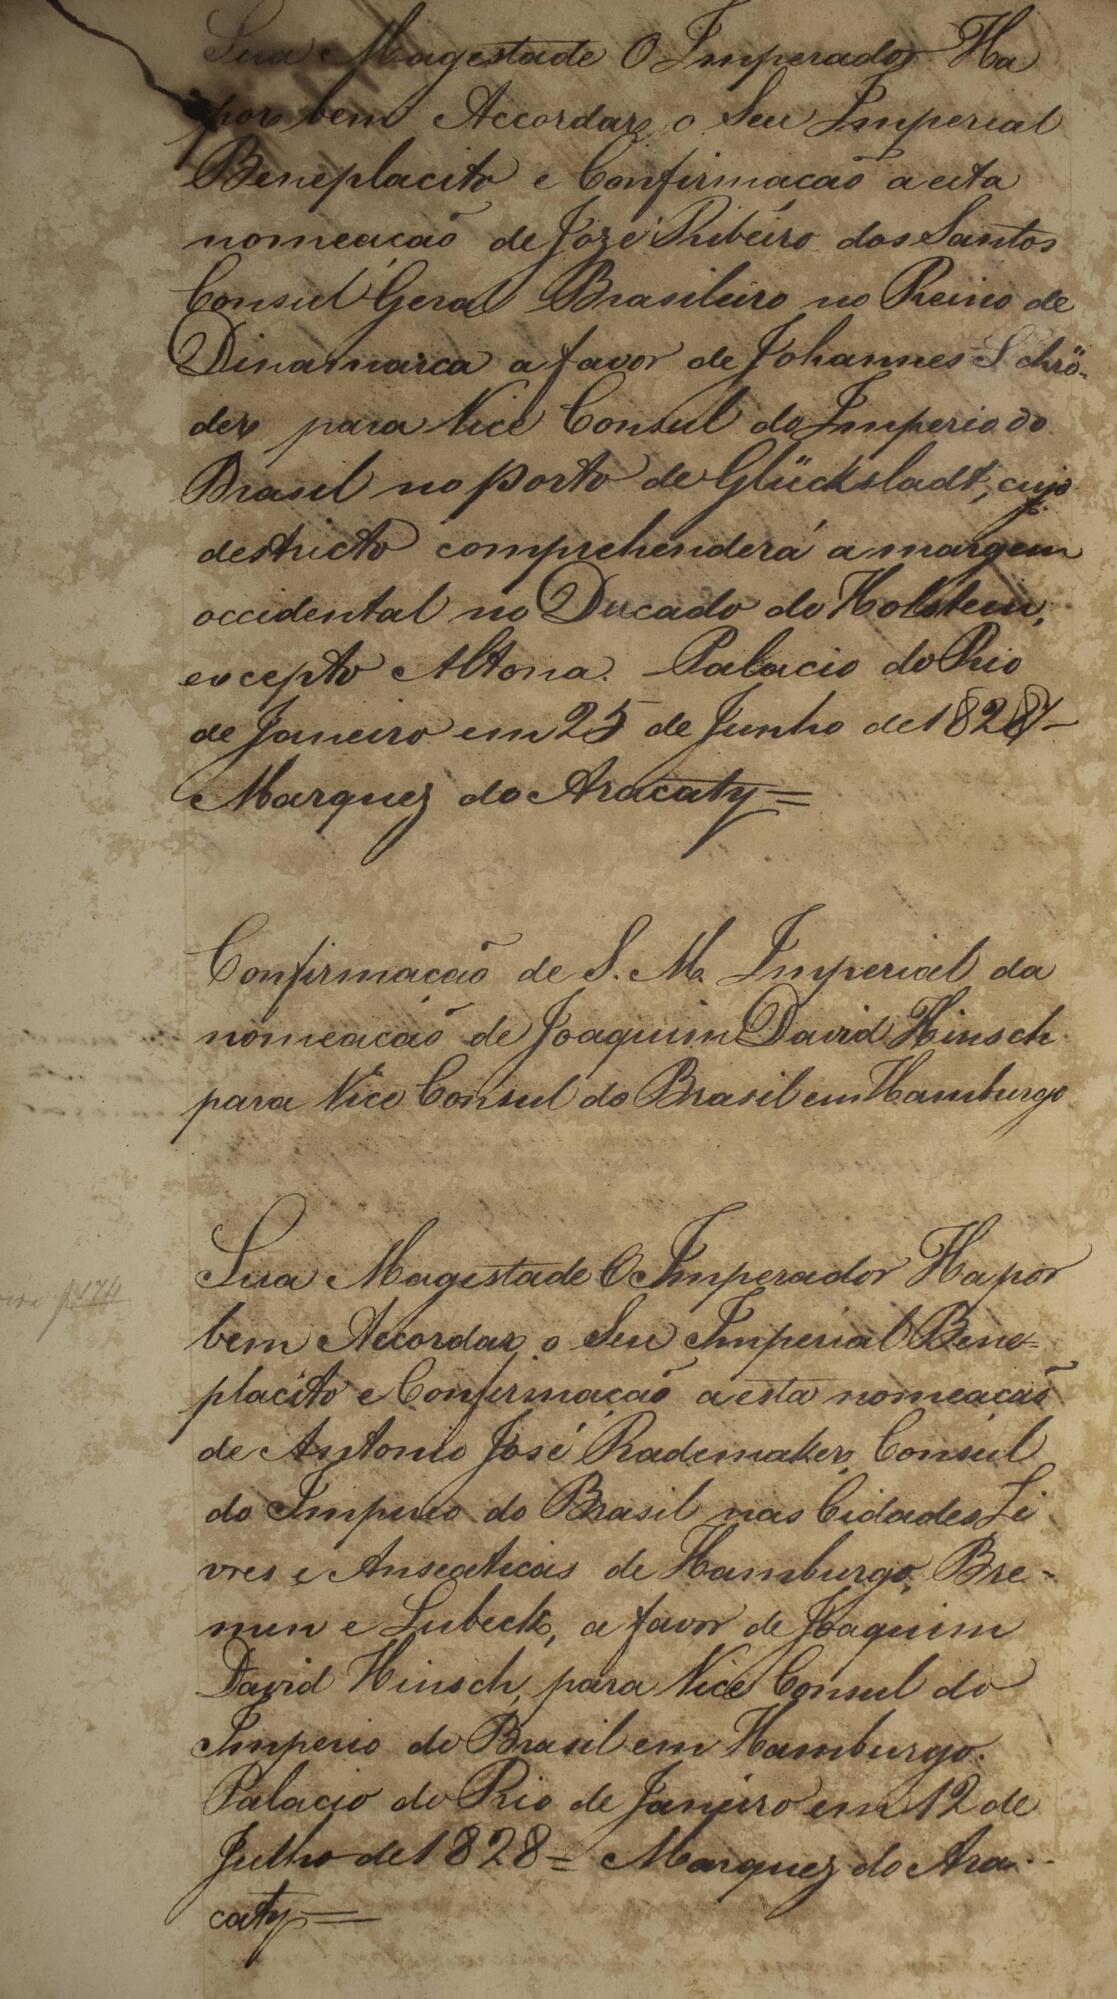 Sua Magestade O Imperador Ha
por bem Accordar o Seu Imperial
Beneplacito e Confirmação a esta
nomeação de Jozé Ribeiro dos Santos
Consul Geral Brasileiro no Reino de
Dinamarca a favor de Johannes Schrö-
der para Vice Consul do Imperio do
Brasil no porto de Glückstadt, cujo
destricto comprehenderá a margem
occidental no Ducado do Holstein,
excepto Altona. Palacio do Rio
de Janeiro em 25 de Junho de
Marquez do Aracaty=
Confirmação de S. M. Imperial da
nomeação de Joaquim David Hinsch
para Vice Consul do Brasil em Hamburgo
Sua Magestade O Imperador Ha por
bem Accordar o Seu Imperial Bene=
placito e Confirmação a esta nomeação
de Antonio José Rademaker Consul
do Imperio do Brasil nas Cidades Li
vres e Anseaticas de Hamburgo, Bre-
men e Lubeck, a favor de Joaquim
David Hinsch, para Vice Consul do
Imperio do Brasil em Hamburgo.
Palacio do Rio de Janeiro em 12 de
Julho de 1828 = Marquez do Ara-
caty=